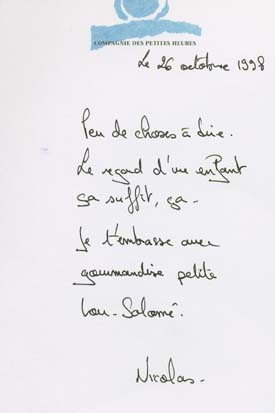 COMPAGNIE DES PETITES HEURES
Le 26 octobre 1998
Peu de choses à dire.
Le regard d'un enfant
ça suffit, ça.
Je t'embrasse avec
gourmandise petite
Lou-Salomé.
Nicolas.